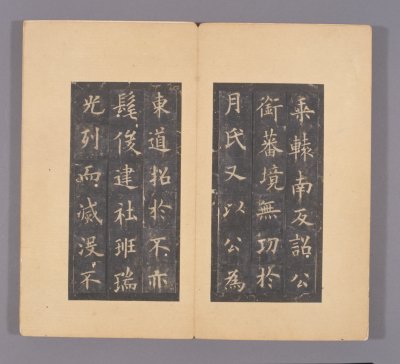 乗轅南反詔公
銜蕃境無功於
月氏又以公為
東道招於不亦
髦俊建社班瑞
光列而滅沒不